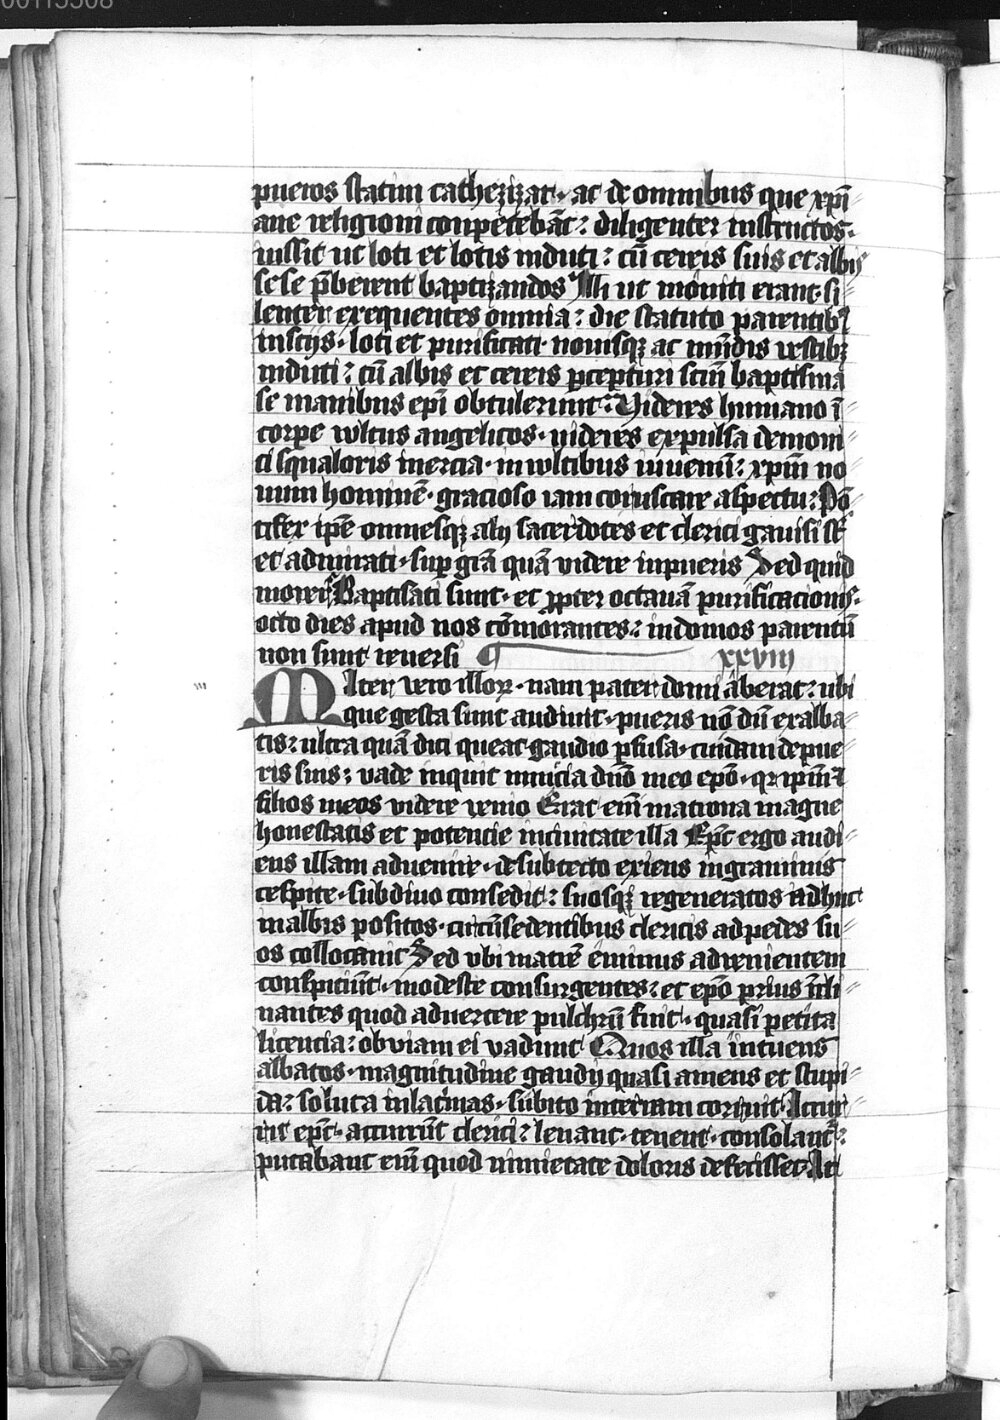 00115508
pueros statim cathezizat· ac de omnibus que xp̄i
ane religioni conpetebāt: diligenter instructos·
iussit ut loti et lotis induti: cū cereis suis et albis
sese p̄berent baptizandos Illi ut moniti erant· si
lenter exequentes omnia: die statuto parentibꝰ
inscijs· loti et purificati· nouisqꝫ ac mūdis vestibꝫ
induti: cū albis et cereis ꝑcepturi scm̄ baptisma
se manibus ep̄i obtulerunt: Uideres humano ī
corpe vultus angelicos· uideres expulsa demoni
ci squaloris inercia· in vultibus iuuenū: xp̄m no
uum hominē· gracioso iam coruscare aspectu: Pō
tifex ip̄e omnesqꝫ alij sacerdotes et clerici gauisi st̄
et admirati· suꝑ grā quā videre in pueris Sed quid
moreis Baptisati sunt· et ꝓpter octauā purificacionis·
octo dies apud nos cōmorantes: in domos parentū
non sunt reuersi xxviij
Mater vero illoꝝ· nam pater domi aberat: ubi
que gesta sunt audiuit· pueris nō dū exalba
tis: ultra quā dici queat gaudio ꝑfusa· cuidam de pue
ris suis: vade inquit nuncia dn̄o meo ep̄o· qꝛ ip̄m ⁊
filios meos videre venio Erat em̄ matrona magne
honestatis et potencie in ciuitate illa Ep̄c ergo audi
ens illam aduenire· de sub tecto exiens in graminis
cespite· sub diuo consedit: suosqꝫ regeneratos adhuc
in albis positos· circūsedentibus clericis ad pedes su
os collocauit Sed vbi matrē eminus aduenientem
conspiciūt· modeste consurgentes: et ep̄o prius īcli
nantes quod aduertere pulchrū fuit· quasi petita
licencia: obuiam ei vadunt Quos illa intuens
albatos· magnitudine gaudij quasi amens et stupi
da: soluta in lacrimas· subito in terram corruit· Accur
rit ep̄c· accurrūt clerici: leuant· tenent· consolantᷣ:
putabant em̄ quod nimietate doloris defecisset· At